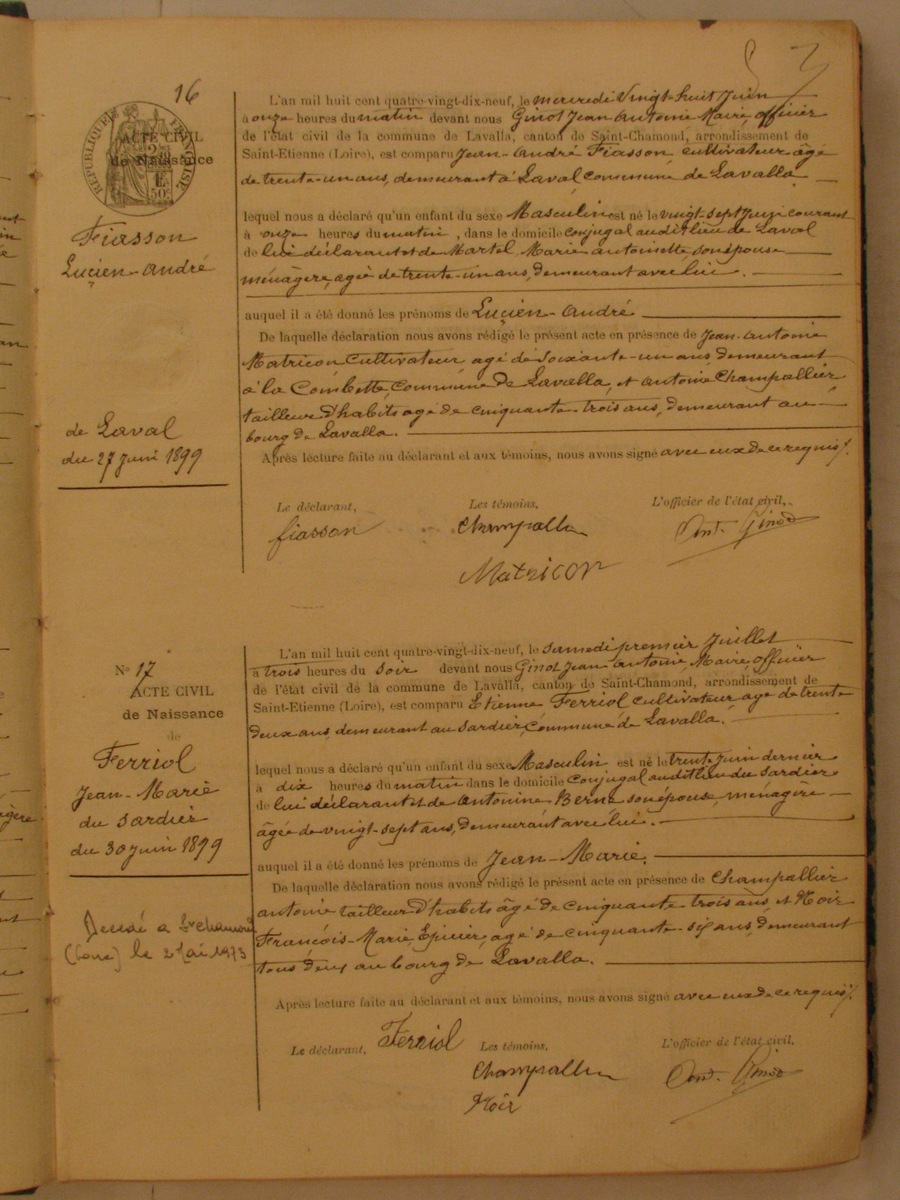 16
RÉPUBLIQUE FRANÇAISE
ACTE CIVIL
de Naissance
Fiasson
Lucien-André
de Laval
du 27 Juin 1899
L'an mil huit cent quatre-vingt-dix-neuf, le mercredi vingt-huit Juin
à onze heures du matin devant nous Ginot Jean Antoine Maire, officier
de l'état civil de la commune de Lavalla, canton de Saint-Chamond, arrondissement de
Saint-Etienne (Loire), est comparu Jean-André Fiasson, cultivateur âgé
de trente-un ans, demeurant à Laval commune de Lavalla
lequel nous a déclaré qu'un enfant du sexe Masculin est né le vingt-sept Juin courant
à onze heures du matin, dans le domicile conjugal audit lieu de Laval
de lui déclarant et de Martel Marie Antoinette son épouse
ménagère, agée de trente-un ans, demeurant avec lui.
auquel il a été donné les prénoms de Lucien-André
De laquelle déclaration nous avons rédigé le présent acte en présence de Jean-Antoine
Matricon cultivateur agé de soixante-un ans demeurant
à la Combette, commune de Lavalla, et Antoine Champallier
tailleur d'habits agé de cinquante-trois ans, demeurant au
bourg de Lavalla.
Après lecture faite au déclarant et aux témoins, nous avons signé avec eux de ce requis.
Le déclarant, Les témoins, L'officier de l'état civil,
fiasson Champallier Ant. Ginod
Matricon
No 17
ACTE CIVIL
de Naissance
de
Ferriol
Jean-Marie
du Sardier
du 30 Juin 1899
Décédé a St Chamond
(Loire) le 2 Mai 1973
L'an mil huit cent quatre-vingt-dix-neuf, le samedi premier Juillet
à trois heures du soir devant nous Ginot Jean Antoine Maire, officier
de l'état civil de la commune de Lavalla, canton de Saint-Chamond, arrondissement de
Saint-Etienne (Loire), est comparu Etienne Ferriol cultivateur age de trente
deux ans, demeurant au Sardier, commune de Lavalla.
lequel nous a déclaré qu'un enfant du sexe Masculin est né le trente Juin dernier
à dix heures du matin dans le domicile conjugal audit lieu du Sardier
de lui déclarant et de Antonine Berne son épouse, ménagère
âgée de vingt-sept ans, demeurant avec lui.
auquel il a été donné les prénoms de Jean-Marie.
De laquelle déclaration nous avons rédigé le présent acte en présence de Champallier
Antoine tailleur d'habits âgé de cinquante-trois ans et Noir
François-Marie Epicier, agé de cinquante-six ans, demeurant
tous deux au bourg de Lavalla.
Après lecture faite au déclarant et aux témoins, nous avons signé avec eux de ce requis.
Le déclarant, Ferriol Les témoins, L'officier de l'état civil,
Champallier Ant. Ginod
Noir